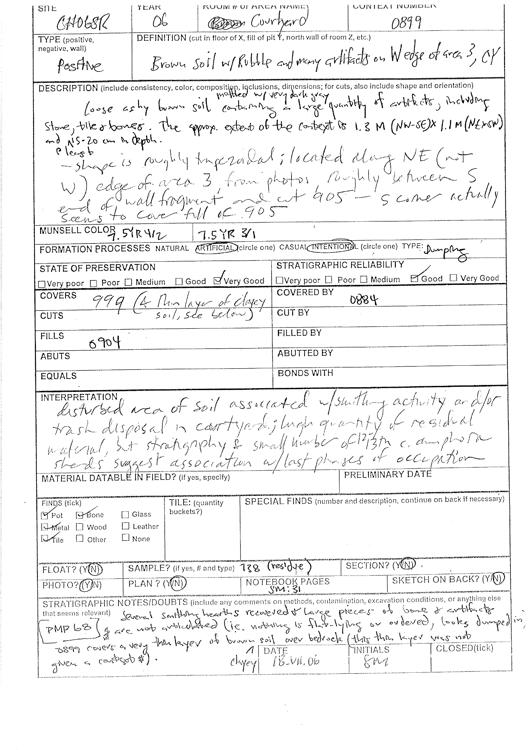 SITE YEAR ROOM # OF AREA NAME CONTEXT NUMBER
CH06SR 06 Courtyard 0899
TYPE (positive, negative, wall) DEFINITION (cut in floor of X, fill of pit Y, north wall of room Z, etc.)
Positive Brown soil w/Rubble and many artifacts on Wedge of area 3, CY
DESCRIPTION (include consistency, color, composition, inclusions, dimensions; for cuts, also include shape and orientation)
mottled w/ very dark grey
Loose ashy brown soil containing a large quantity of artifacts, including
stone, tile & bones. The approx. extent of the context is 1.3 M (NW-SE) X 1.1 M (NE x SW)
and 15-20 cm in depth.
- shape is roughly trapezoidal; located along NE (not
W) edge of area 3, from photos roughly between S
end of wall fragment and cut 905 - S corner actually
seems to cover fill of 905
MUNSELL COLOR 7.5YR 4/2 7.5 YR 3/1
FORMATION PROCESSES NATURAL ARTIFICIAL (circle one) CASUAL INTENTIONAL (circle one) TYPE: Dumping
STATE OF PRESERVATION STRATIGRAPHIC RELIABILITY
Very poor Poor Medium Good Very Good Very poor Poor Medium Good Very Good
COVERS 999 (& thin layer of clayey soil, see below) COVERED BY 0884
CUTS CUT BY
FILLS 0904 FILLED BY
ABUTS ABUTTED BY
EQUALS BONDS WITH
INTERPRETATION
disturbed area of soil associated w/smithing activity and/or
trash disposal in courtyard; high quantity of residual
material, but stratigraphy & small number of 12/13th c. amphora
sherds suggest association w/last phases of occupation
MATERIAL DATABLE IN FIELD? (if yes, specify) PRELIMINARY DATE
FINDS (tick) TILE: (quantity buckets?) SPECIAL FINDS (number and description, continue on back if necessary)
Pot Bone Glass
Metal Wood Leather
Tile Other None
FLOAT? (Y/N) SAMPLE? (if yes, # and type) 738 (residue) SECTION? (Y/N)
PHOTO? (Y/N) PLAN? (Y/N) NOTEBOOK PAGES SM:31 SKETCH ON BACK? (Y/N)
STRATIGRAPHIC NOTES/DOUBTS (include any comments on methods, contamination, excavation conditions, or anything else that seems relevant)
Several smithing hearths recovered & large pieces of bone & artifacts
PMP 68 are not articulated (i.e. nothing is flat-lying or ordered, looks dumped in)
0899 covers a very thin layer of brown soil over bedrock (this thin layer was not
given a context #).
clayey DATE 18.VII.06 INITIALS SM CLOSED (tick)